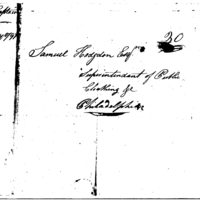 20
Samuel Hodgdon Esqr
Superintendant of Public
Clothing &c
Philadelphia